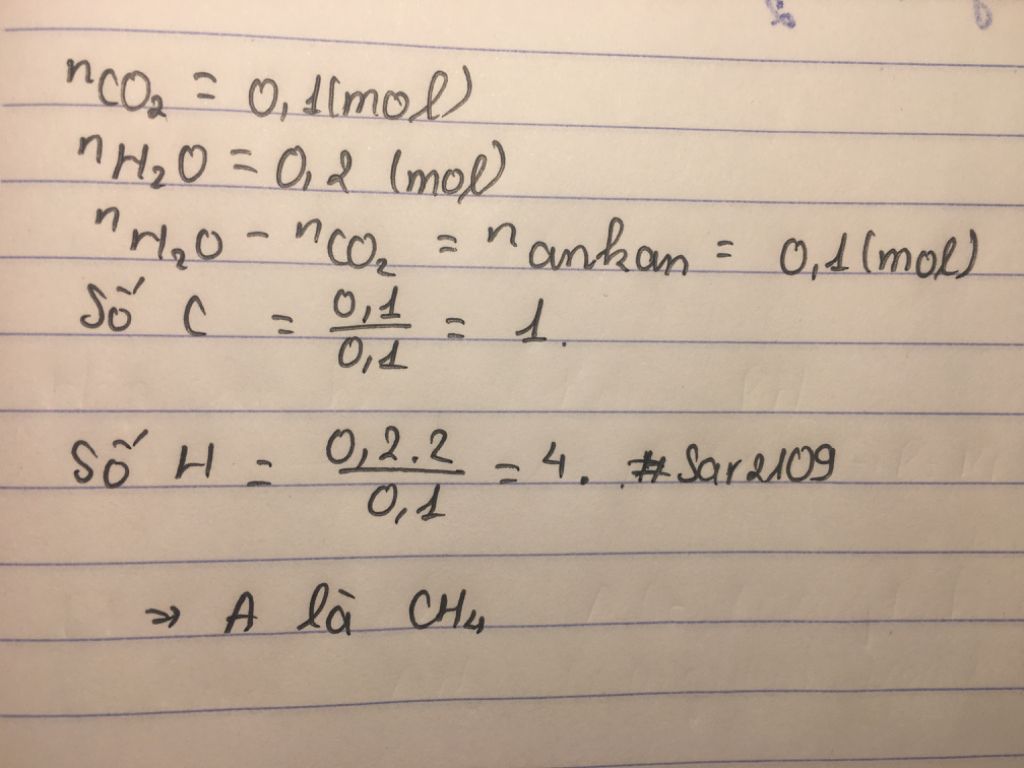 nCO₂ = 0,1(mol)
nH₂O = 0,2 (mol)
nH₂O - nCO₂ = nankan = 0,1(mol)
Số C = 0,1/0,1 = 1.
Số H = 0,2.2/0,1 = 4. #Sar2109
=> A là CH₄